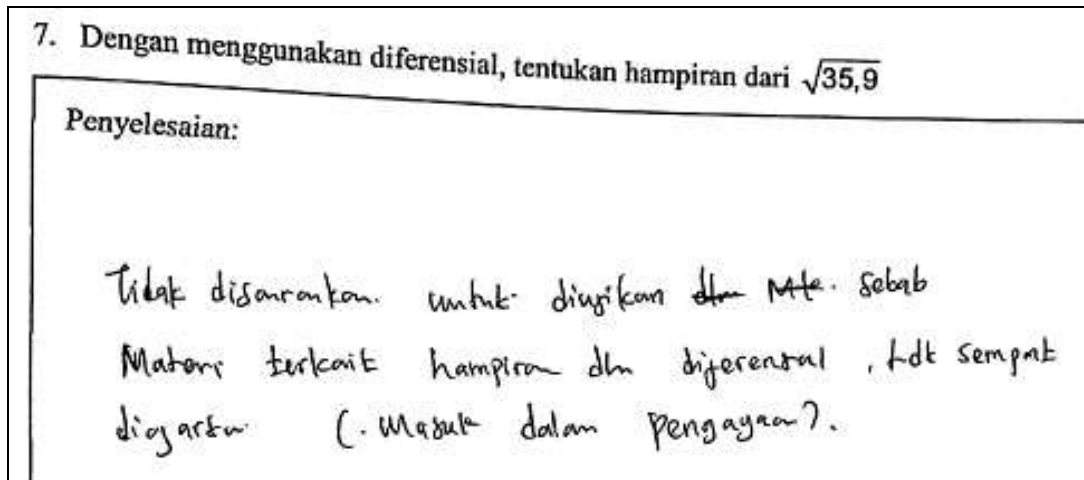 7. Dengan menggunakan diferensial, tentukan hampiran dari √35,9
Penyelesaian:
Tidak disarankan. untuk diujikan dlm Mtk. Sebab
Materi terkait hampiran dlm diferensial, tdk sempat
diajarkan (. Masuk dalam pengayaan).